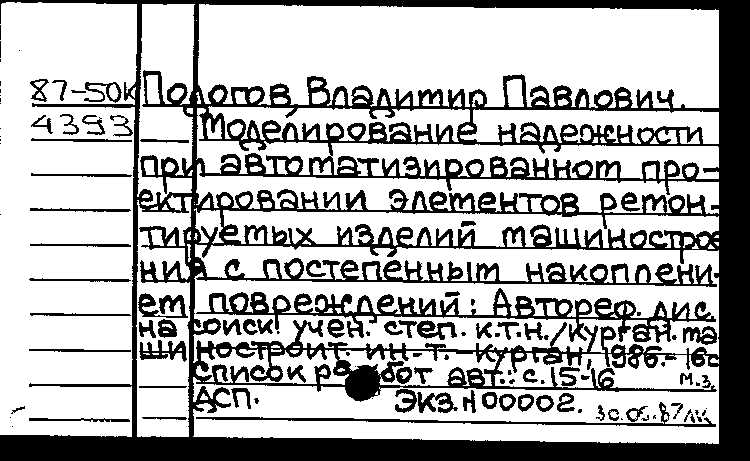 87-50К Пологов, Владимир Павлович.
4393 Моделирование надежности
при автоматизированном про-
ектировании элементов ремон-
тируемых изделий машинострое
ния с постепенным накоплени-
ем повреждений: Автореф. дис.
на соиск. учен. степ. к.т.н./Курган. ма
шиностроит. ин-т.-Курган, 1986.- 16с
Список работ авт.: с.15-16 М.З.
ДСП. ЭКЗ.N00002. 30.06.87ЛК